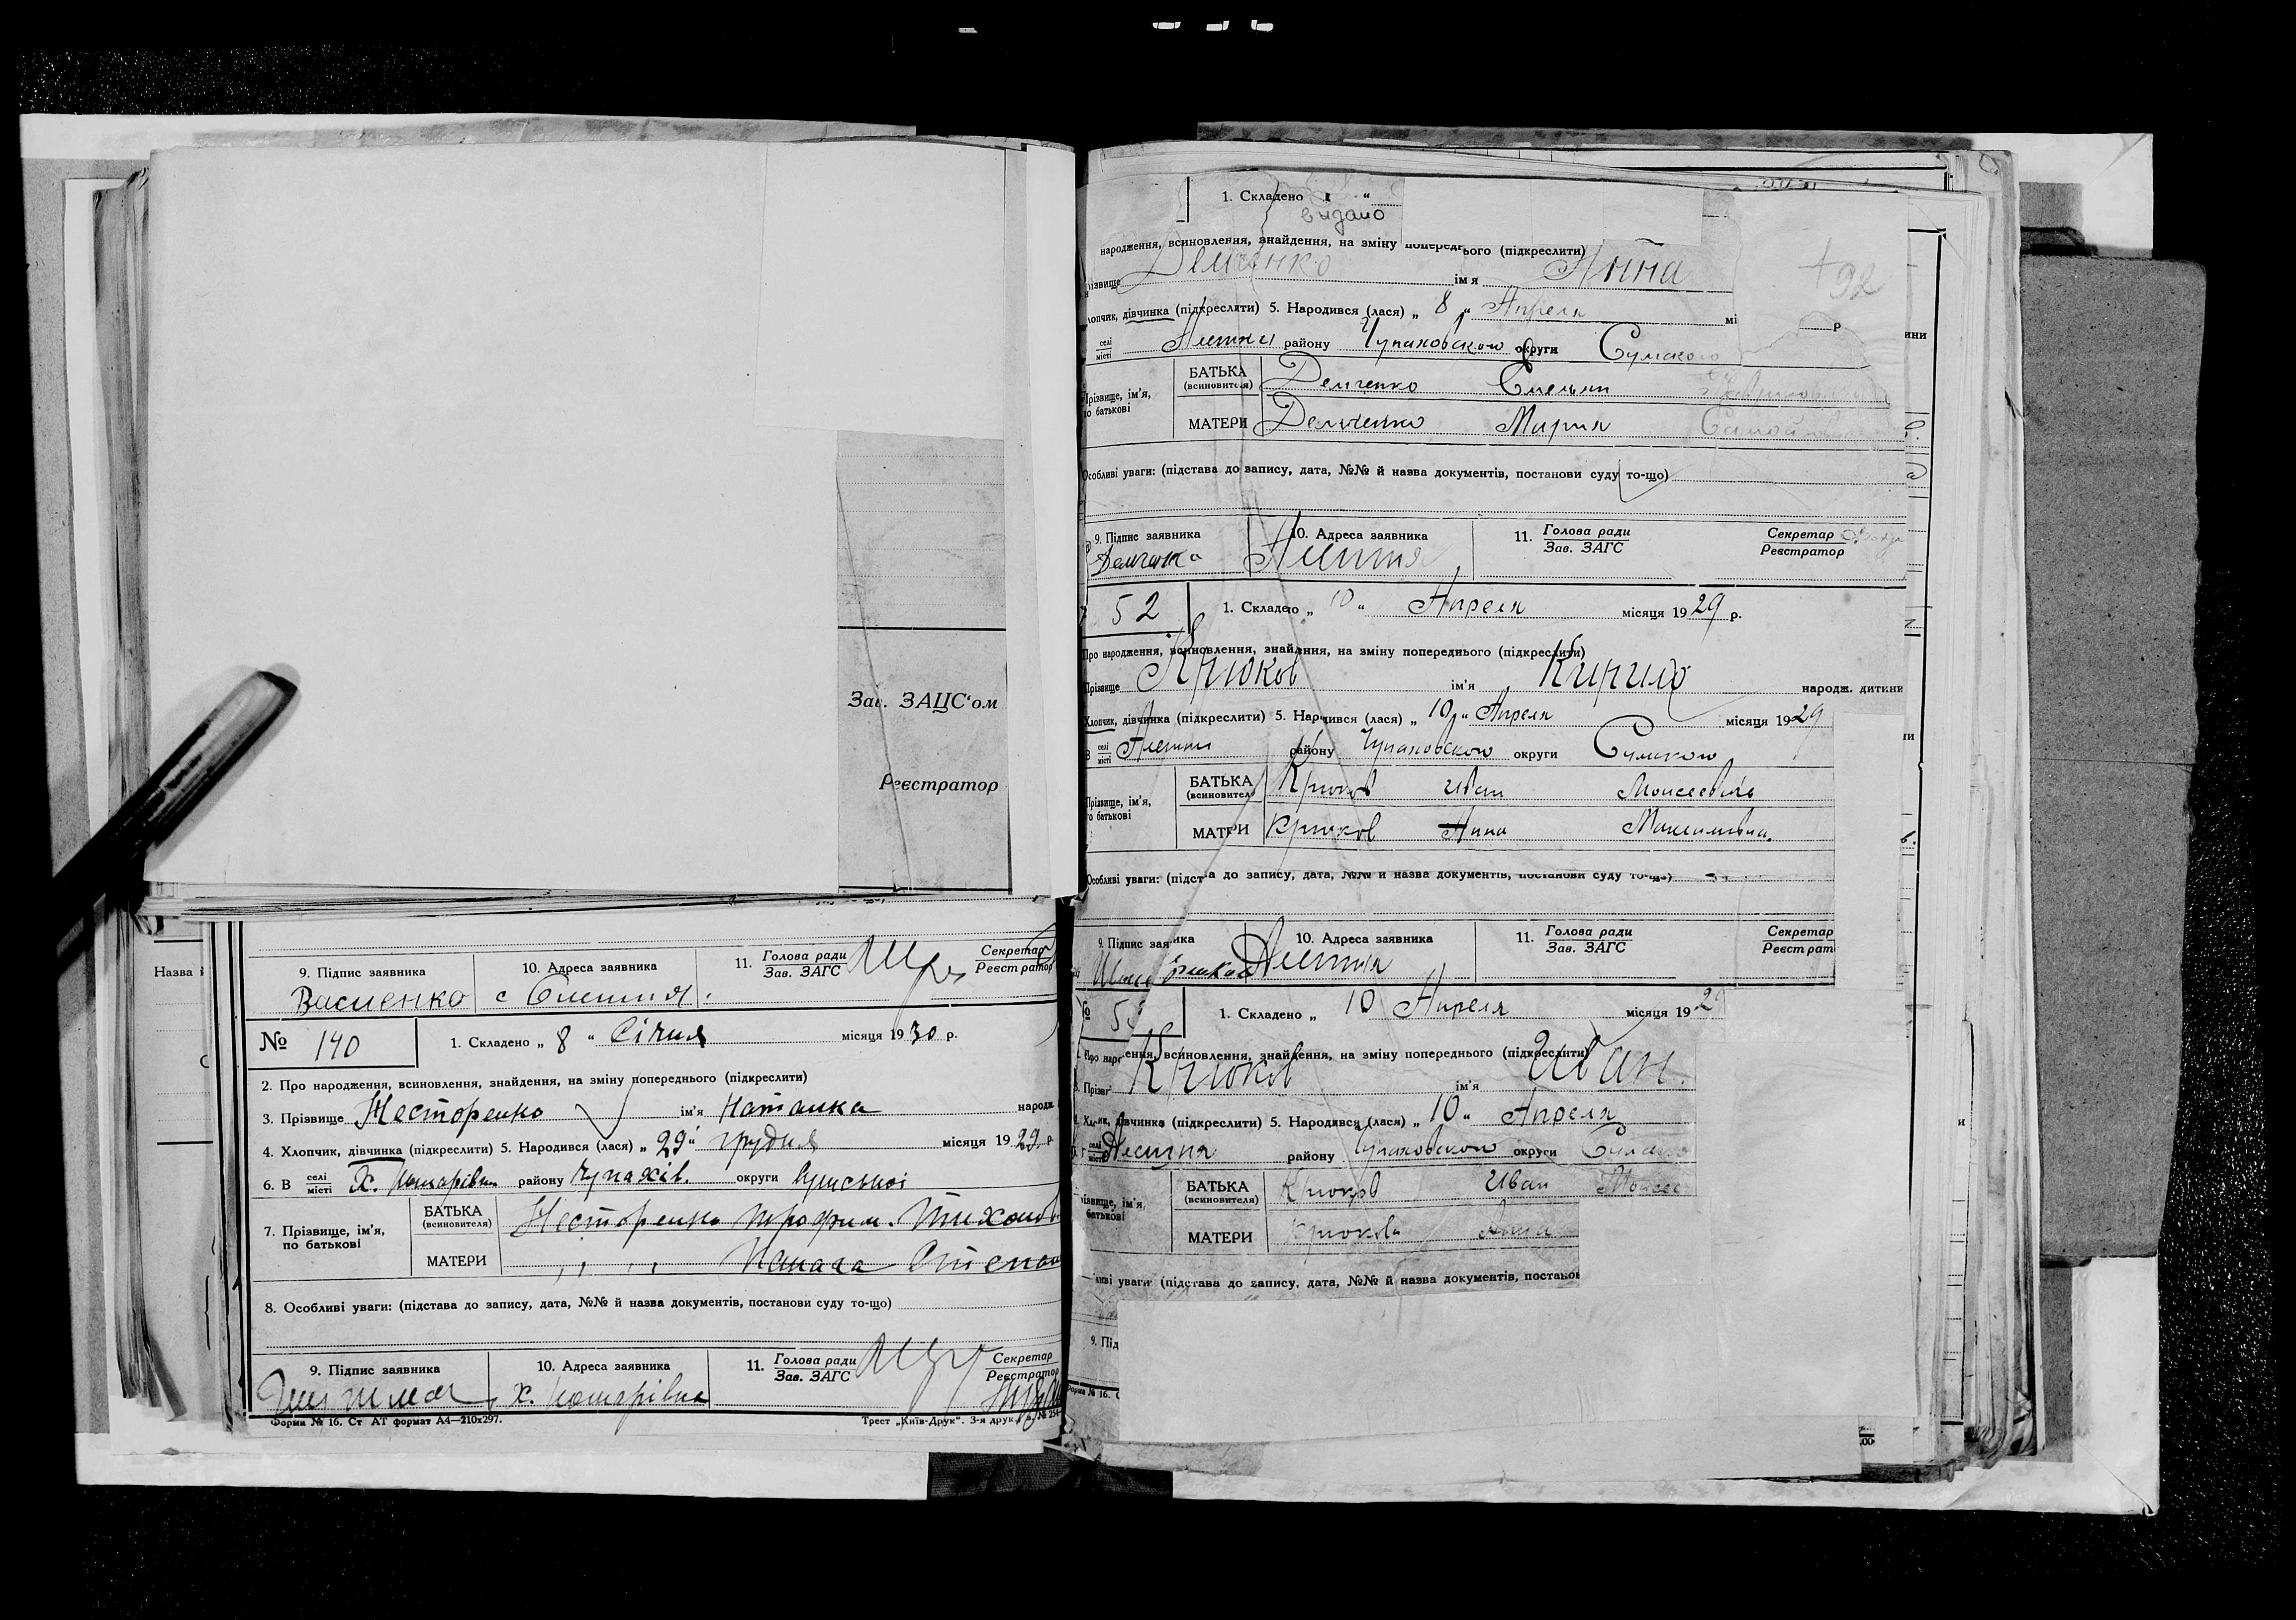 Зав. ЗАЦС'ом
Реєстратор
Назва
9. Підпис заявника 10. Адреса заявника 11. Голова ради Секретар
Зав. ЗАГС Реєстратор
Василенко с Олешня.
№ 140 1. Складено „ 8 “ Січня місяця 1930 р.
2. Про народження, всиновлення, знайдення, на зміну попереднього (підкреслити)
3. Прізвище Несторенко ім'я Наталка народж
4. Хлопчик, дівчинка (підкреслити) 5. Народився (лася) „ 29 “ грудня місяця 1929 р
6. В селі Х. району Чупахів. округи Сумської
місті
7. Прізвище, ім'я, по батькові
БАТЬКА Несторенко Трофим. Тихонов
(всиновителя)
МАТЕРИ „ „ Степан
8. Особливі уваги: (підстава до запису, дата, №№ й назва документів, постанови суду то-що)
9. Підпис заявника 10. Адреса заявника 11. Голова ради Секретар
Зав. ЗАГС Реєстратор
Форма № 16. Ст АТ формат А4—210х297. Трест „Київ-Друк“. 3-я друк
1. Складено „ “
видано
народження, всиновлення, знайдення, на зміну попереднього (підкреслити)
різвище Демченко ім'я Анна
+92
лопчик, дівчинка (підкреслити) 5. Народився (лася) „ 8 “ Апреля мі р
селі району Чупаховского округи Сумского
місті
Прізвище, ім'я, по батькові
БАТЬКА Демченко Емельян
(всиновителя)
МАТЕРИ Демченко Мария
Особливі уваги: (підстава до запису, дата, №№ й назва документів, постанови суду то-що)
9. Підпис заявника 10. Адреса заявника 11. Голова ради Секретар
Зав. ЗАГС Реєстратор
Демченко Алешня
52 1. Складено „ 10 “ Апреля місяця 1929 р.
Про народження, всиновлення, знайдення, на зміну попереднього (підкреслити)
Прізвище Крюков ім'я Кирило народж. дитини
Хлопчик, дівчинка (підкреслити) 5. Народився (лася) „ 10 “ Апреля місяця 1929
В селі Алешня району Чупаховского округи Сумского
місті
Прізвище, ім'я, го батькові
БАТЬКА Крюков Иван Моисеевич
(всиновителя
МАТЕРИ Крюков Анна Максимовна.
Особливі уваги: (підстава до запису, дата, №№ й назва документів, постанови суду то-що)
9. Підпис заявника 10. Адреса заявника 11. Голова ради Секретар
Зав. ЗАГС Реєстрат
Алешня
№ 53 1. Складено „ 10 Апреля місяця 1929
Про народження, всиновлення, знайдення, на зміну попереднього (підкреслити)
3. Прізви Крюков ім'я Иван.
4. Хлопчик, дівчинка (підкреслити) 5. Народився (лася) „ 10 “ Апреля
селі Алешня району Чупаховского округи Сумского
місті
різвище, ім'я, батькові
БАТЬКА Крюков Иван Моисее
(всиновителя)
МАТЕРИ Крюкова Анна
ливі уваги (підстава до запису, дата, №№ й назва документів, постанов
9. Під
Форма № 16. С